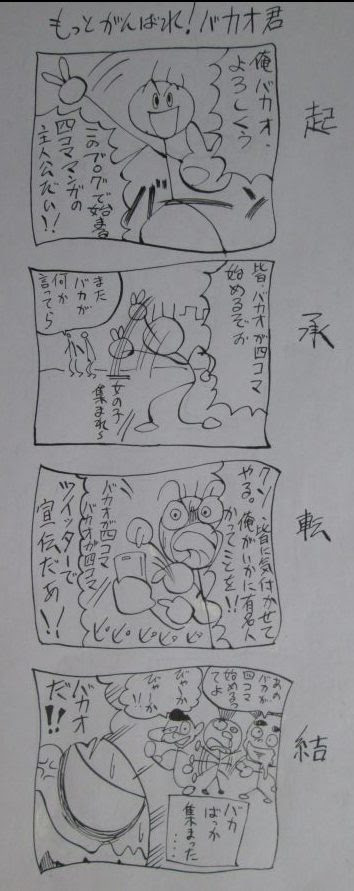 もっとがんばれ!バカオ君
起
俺バカオ、
よろしくぅ
このブログで始まる
四コママンガの
主人公だい!!
承
皆、バカオが四コマ
始めるぞぉ
女の子
集まれら
また
バカが
何か
言ってら
転
クソー皆に気付かせて
やる。俺がいかに有名人
かってことを!!
バカオが四コマ
バカオが四コマ
ピピピピ
ツイッターで
宣伝だぁ!!
結
あの
バカが
四コマ
始めるっ
てよ
びゃーか
びゃーか
バカ
ばっか
集まった
・・・・
バカオ
だ!!